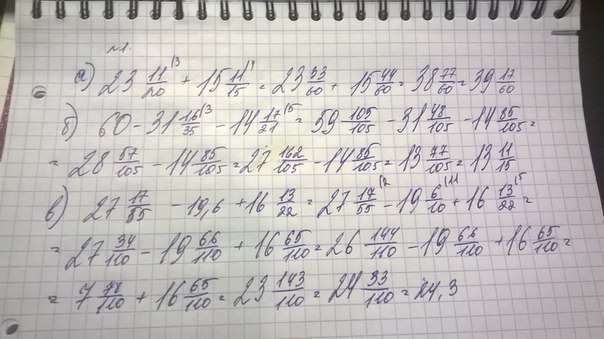 №1.
а) 23 11/20 ^|3 + 15 11/15 ^|4 = 23 33/60 + 15 44/60 = 38 77/60 = 39 17/60
б) 60 - 31 16/35 ^|3 - 14 17/21 ^|5 = 59 105/105 - 31 48/105 - 14 85/105 =
= 28 57/105 - 14 85/105 = 27 162/105 - 14 85/105 = 13 77/105 = 13 11/15
в) 27 17/55 - 19,6 + 16 13/22 = 27 17/55 ^|2 - 19 6/10 ^|11 + 16 13/22 ^|5 =
= 27 34/110 - 19 66/110 + 16 65/110 = 26 144/110 - 19 66/110 + 16 65/110 =
= 7 78/110 + 16 65/110 = 23 143/110 = 24 33/110 = 24,3